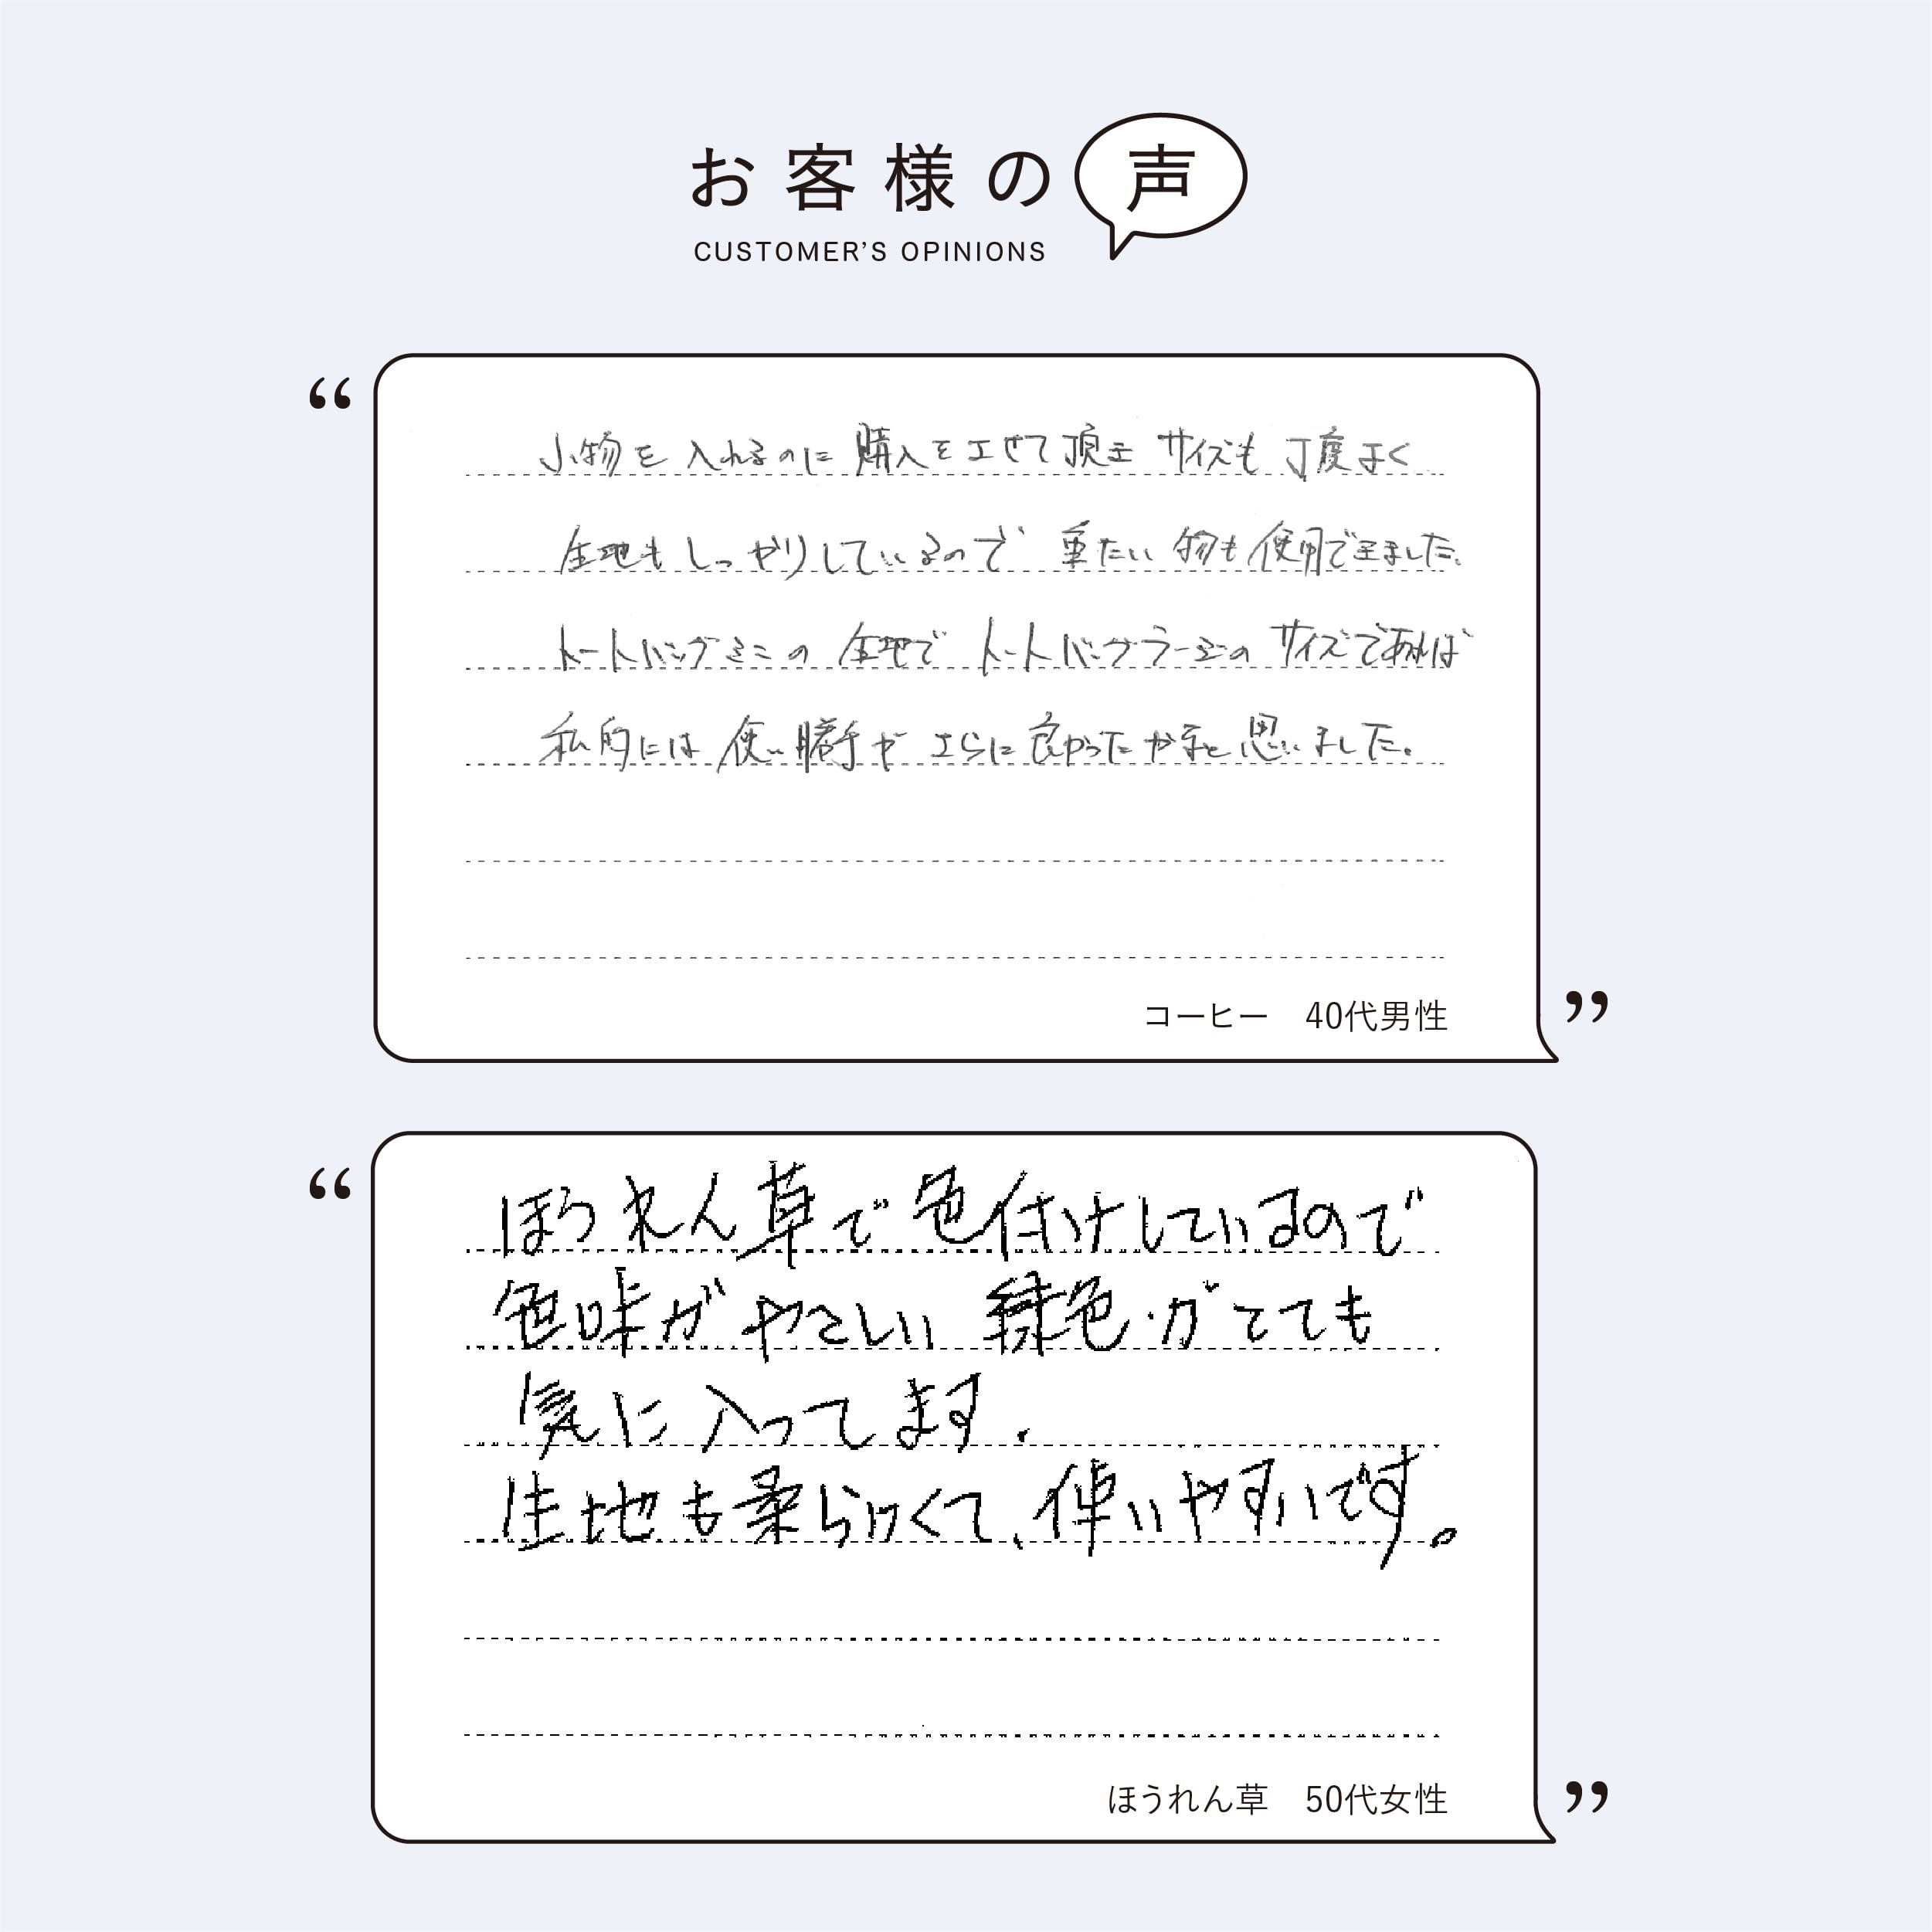 お客様の声
CUSTOMER’S OPINIONS
“
小物を入れるのに購入をさせて頂き サイズも丁度よく
生地もしっかりしているので 重たい物も使用できました。
トートバッグミニの生地で トートバッグラージのサイズであれば
私的には使い勝手がさらに良かったかなと思いました。
コーヒー　40代男性
”
“
ほうれん草で色付けしているので
色味がやさしい緑色がとても
気に入ってます.
生地も柔らかくて、使いやすいです。
ほうれん草　50代女性
”